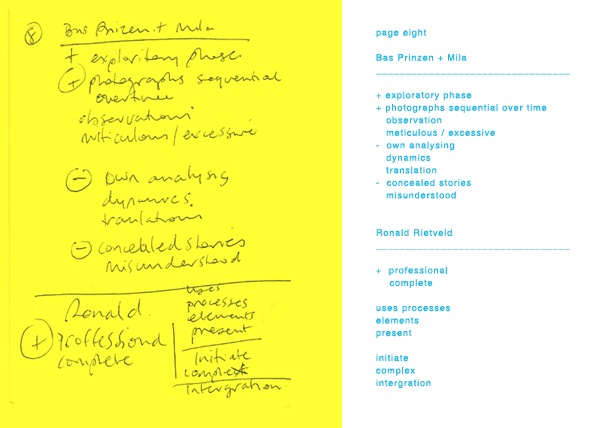 8 Bas Prinzen + Mila
+ exploritory phase
+ photographs sequential
overtime
observations
meticulous / excessive
- own analysing
dynamics.
translations
- concebled stories
misunderstood
Ronald.
+ Proffessional
complete
uses
processes
elements
present
Initiate
complex
Intergration
page eight
Bas Prinzen + Mila
+ exploratory phase
+ photographs sequential over time
observation
meticulous / excessive
- own analysing
dynamics
translation
- concealed stories
misunderstood
Ronald Rietveld
+ professional
complete
uses processes
elements
present
initiate
complex
intergration